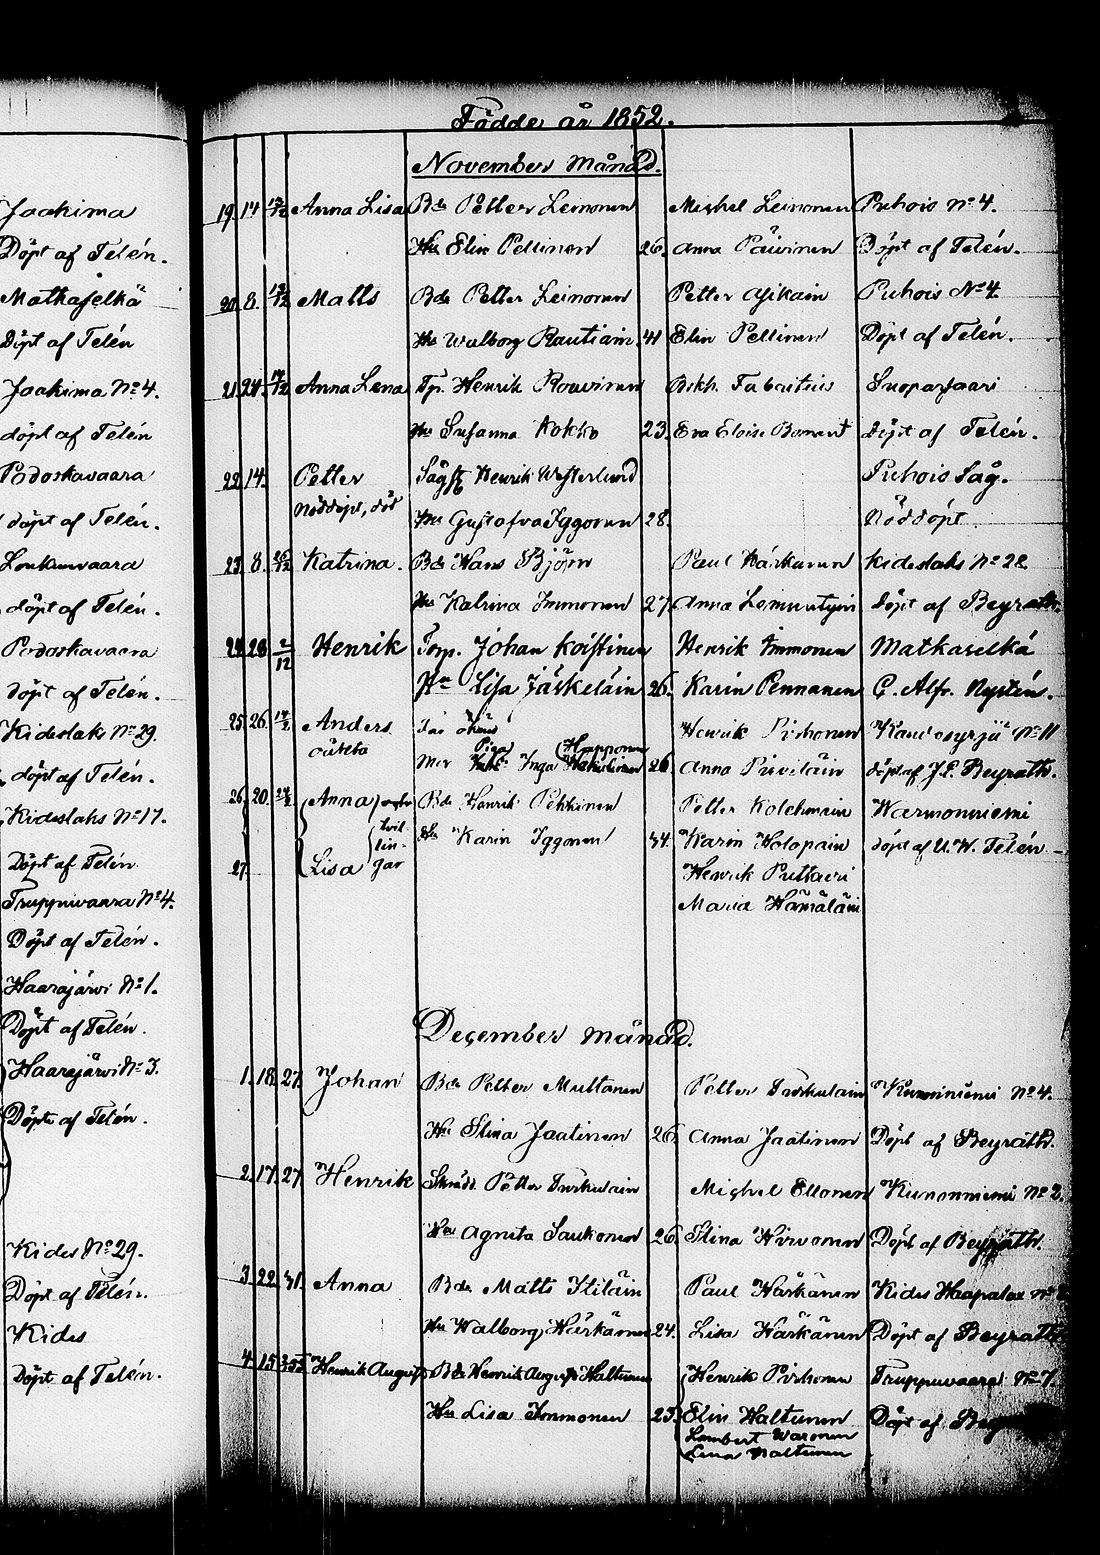 Jaakima
Döpt af Telén.
Matkaselkä
Döpt af Telén
Jaakima No 4.
döpt af Telén
Podoskavaara
döpt af Telén.
Loukunvaara
döpt af Telén.
Podoskavaara
döpt af Telén.
Kideslaks No 29.
döpt af Telén.
Kideslaks No 17.
Döpt af Telén.
Truppuvaara No 4.
Döpt af Telén.
Haarajärvi No 1.
Döpt af Telén.
Haarajärvi No 3.
Döpt af Telén.
Kides No 29.
Döpt af Telén.
Kides
Döpt af Telén.
Födde år 1852.
November Månad.
19. 14 12/12 Anna Lisa Bde Petter Leinonen Michel Leinonen Puhois No 4.
Hu Elin Pellinen 26. Anna Päivinen Döpt af Telén.
20. 8. 12/12 Matts Bde Petter Leinonen Petter Puhois No 4.
Hu Walborg Rautiain 41 Elin Pellinen Döpt af Telén.
21. 24. Anna Lena Tp. Henrik Rouvinen Suoparsaari
Hu Susanna Kokko 23. Eva Eloise Döpt af Telén.
22. 14. Petter Henrik Westerlund Puhois Såg.
nöddöpt, död
Hu Gustafva Iggonen 28. Nöddöpt
23. 8. 26/12 Katrina. Bde Hans Björn Paul Härkänen Kideslaks No 22
Hu Katrina Immonen 27. Anna döpt af Beyrath.
24. 28. 2/12 Henrik Torp. Johan Koistinen Henrik Immonen Matkaselkä
Hu Lisa Jäskeläin 26. Karin Pennanen C. Alfr. Nystén.
25. 26. Anders Far okänd Henrik Pirhonen No 11
oäkta
Mor Piga Inga Happonen 26 Anna döpt af J. E. Beyrath.
26. 20. Anna Bde Henrik Pekkinen Petter Kolehmain Warmonniemi
tvil
lin-
Hu Karin Iggonen 34. Karin Holopain döpt af U. W. Telén.
27. Lisa gar Henrik Puttaeri
Maria Hämäläin
December månad.
1. 18. 27. Johan Bde Petter Multanen Petter Turkulain Kunonniemi No 4.
Hu Stina Jaatinen 26. Anna Jaatinen Döpt af Beyrath.
2. 17. 27. Henrik Petter Turkulain Michel Ellonen Kunonniemi No 2.
Hu Agneta Saukonen 26. Stina Hirvonen Döpt af Beyrath.
3. 22. 31. Anna Bde Matts Itiläin Paul Härkänen Kides Haapalax No
Hu Walborg Härkänen 24. Lisa Härkänen Döpt af Beyrath
4. 15. Henrik August Bde Henrik August Haltunen Henrik Pirhonen Truppuvaara No 7.
Hu Lisa Immonen 25. Elin Haltunen Döpt af
Lambert Waronen
Lena Haltunen